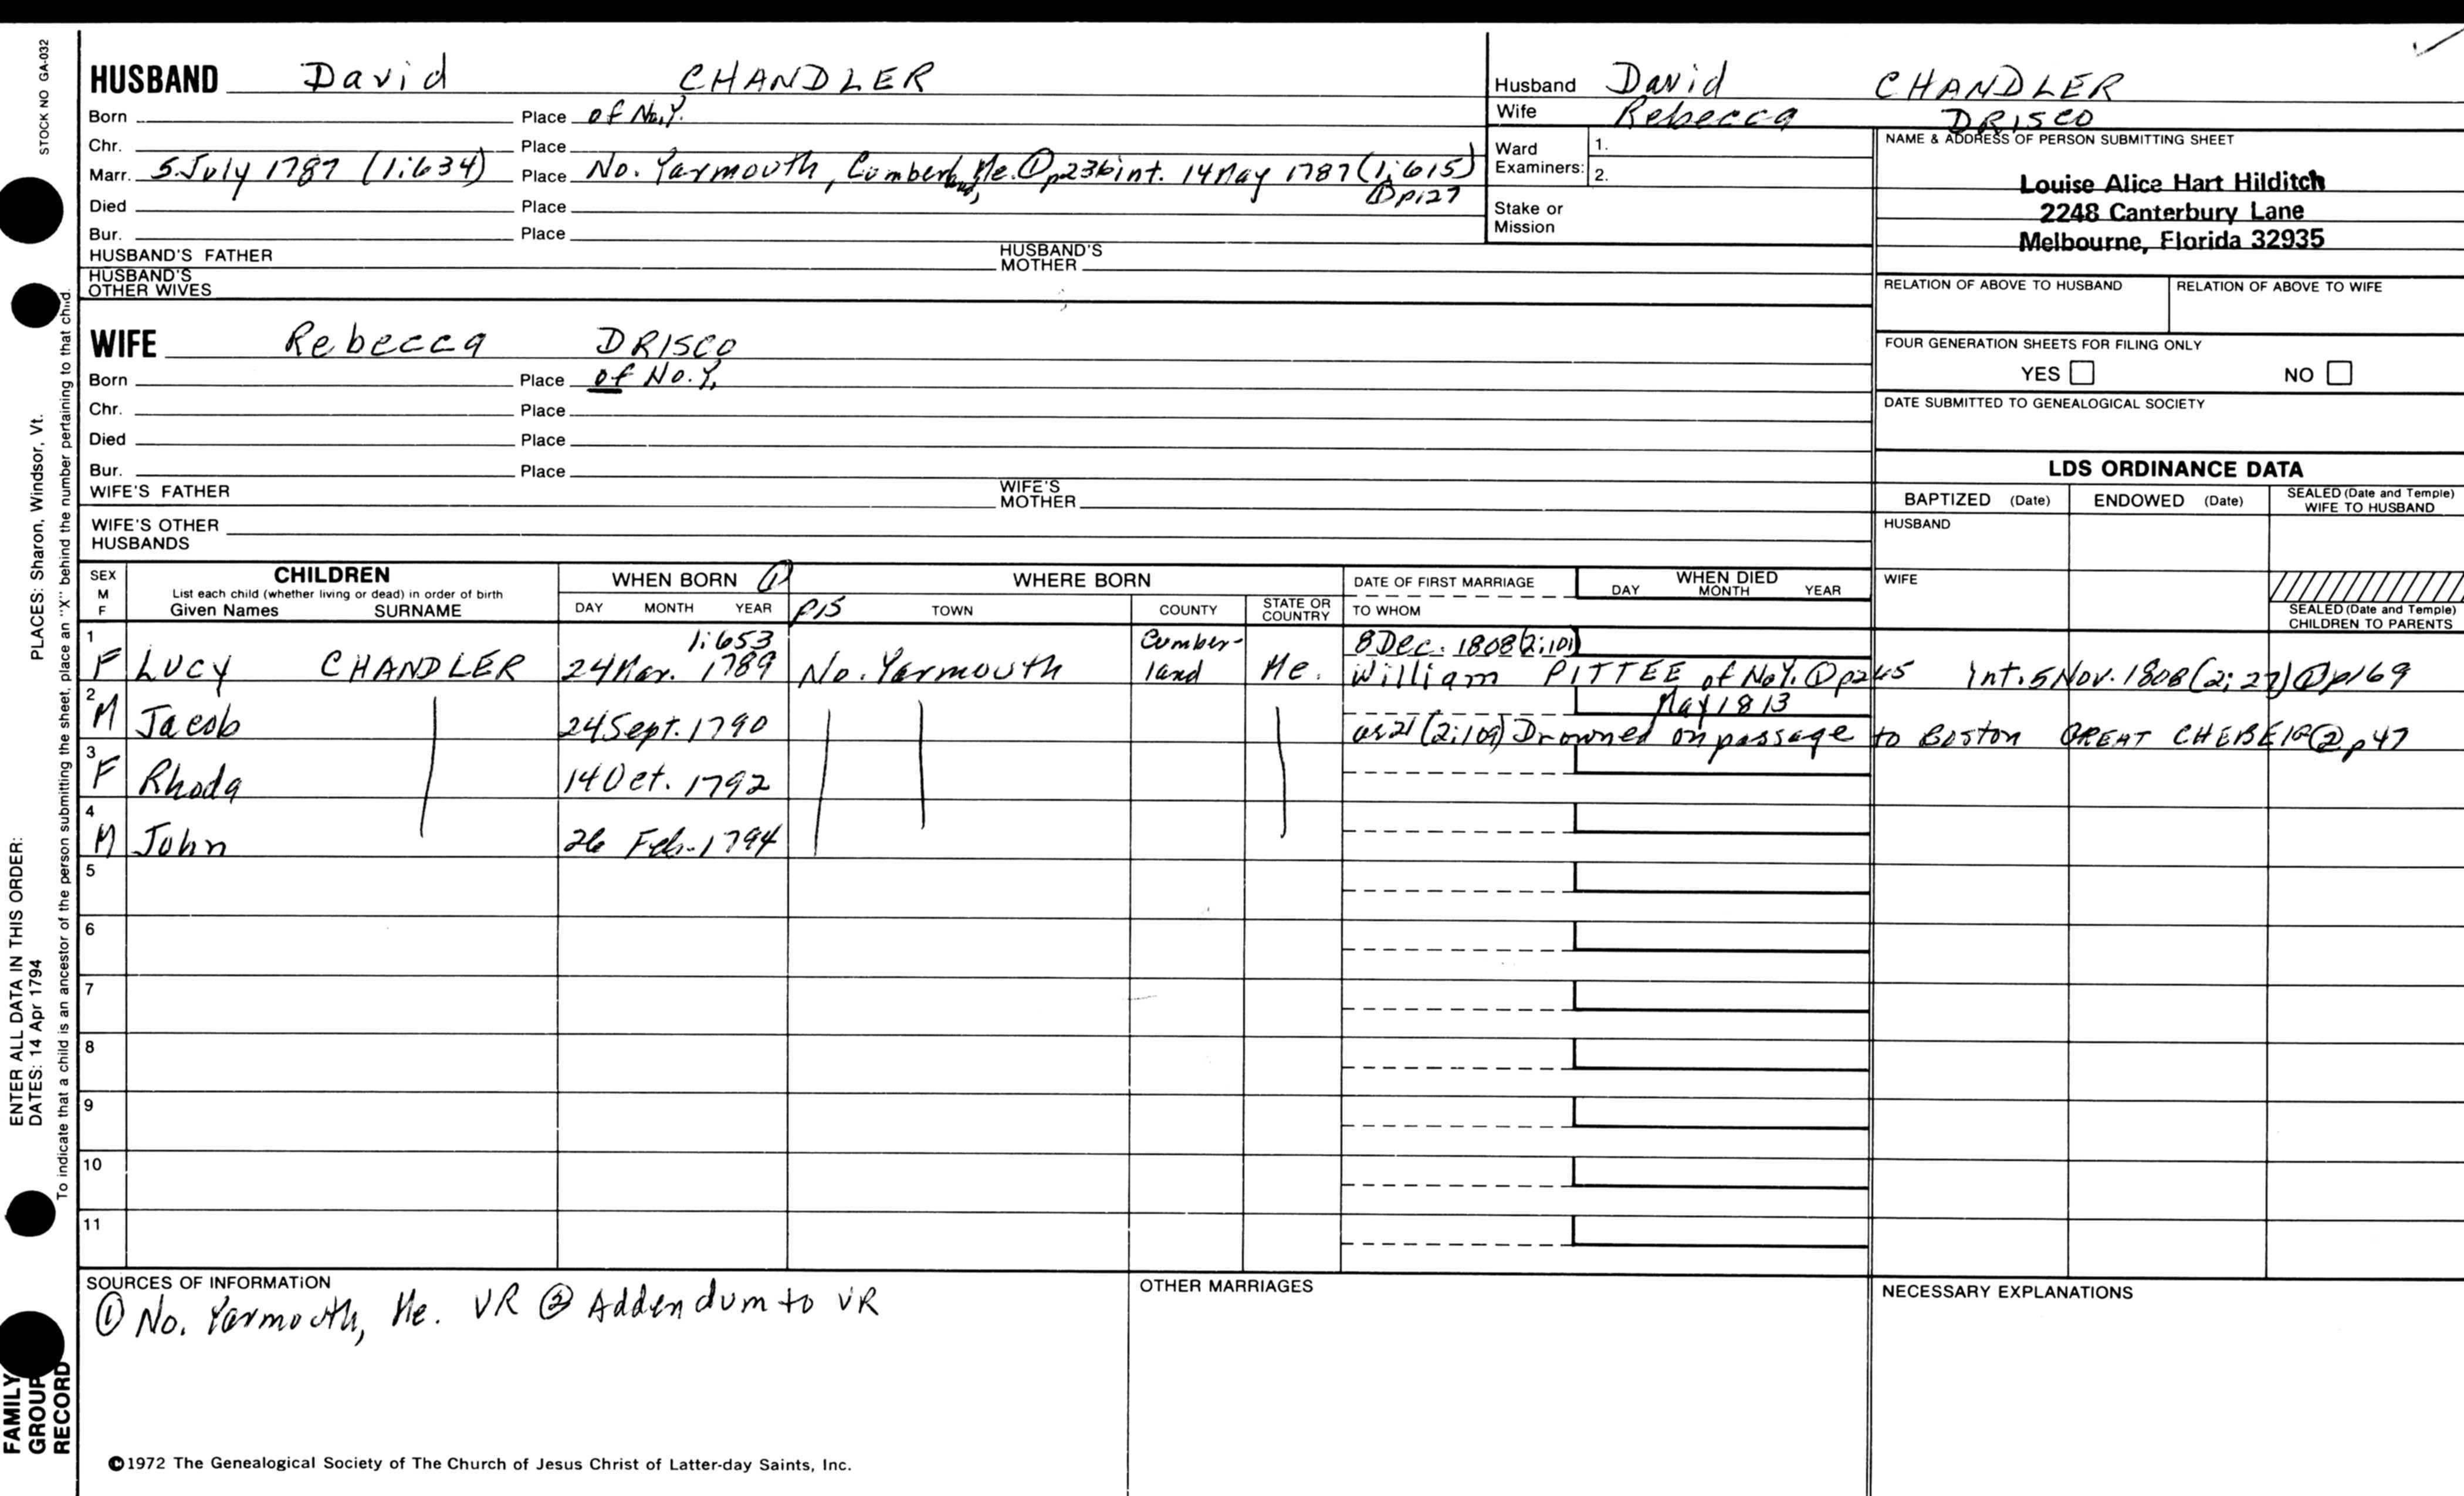 STOCK NO GA-032
HUSBAND David CHANDLER
Born Place of No.Y.
Chr. Place
Marr. 5 July 1787 (1:634) Place No. Yarmouth, Cumberland, Me. ① p236 int. 14 May 1787 (1:615)
① p127
Died Place
Bur. Place
HUSBAND'S FATHER HUSBAND'S MOTHER
HUSBAND'S OTHER WIVES
WIFE Rebecca DRISCO
Born Place of No.Y.
Chr. Place
Died Place
Bur. Place
WIFE'S FATHER WIFE'S MOTHER
WIFE'S OTHER HUSBANDS
Husband David CHANDLER
Wife Rebecca DRISCO
Ward Examiners: 1.
2.
Stake or Mission
NAME & ADDRESS OF PERSON SUBMITTING SHEET
Louise Alice Hart Hilditch
2248 Canterbury Lane
Melbourne, Florida 32935
RELATION OF ABOVE TO HUSBAND RELATION OF ABOVE TO WIFE
FOUR GENERATION SHEETS FOR FILING ONLY
YES NO
DATE SUBMITTED TO GENEALOGICAL SOCIETY
LDS ORDINANCE DATA
BAPTIZED (Date) ENDOWED (Date) SEALED (Date and Temple) WIFE TO HUSBAND
HUSBAND
WIFE
SEALED (Date and Temple) CHILDREN TO PARENTS
SEX M F
CHILDREN
List each child (whether living or dead) in order of birth
Given Names SURNAME
WHEN BORN ① p15
DAY MONTH YEAR
WHERE BORN
TOWN COUNTY STATE OR COUNTRY
DATE OF FIRST MARRIAGE
TO WHOM
WHEN DIED
DAY MONTH YEAR
1 1:653 Cumber- 8 Dec. 1808 (2:101)
F LUCY CHANDLER 24 Mar. 1789 No. Yarmouth land Me. William PITTEE of No.Y. ① p245 Int. 5 Nov. 1808 (2:27) ① p169
2 May 1813
M Jacob 24 Sept. 1790 as 21 (2:109) Drowned on passage to Boston GREAT CHEBEIG ② p47
3
F Rhoda 14 Oct. 1792
4
M John 26 Feb. 1794
5
6
7
8
9
10
11
SOURCES OF INFORMATION
① No. Yarmouth, Me. VR ② Addendum to VR
OTHER MARRIAGES
NECESSARY EXPLANATIONS
©1972 The Genealogical Society of The Church of Jesus Christ of Latter-day Saints, Inc.
ENTER ALL DATA IN THIS ORDER:
DATES: 14 Apr 1794
PLACES: Sharon, Windsor, Vt.
To indicate that a child is an ancestor of the person submitting the sheet, place an "X" behind the number pertaining to that child.
FAMILY
GROUP
RECORD